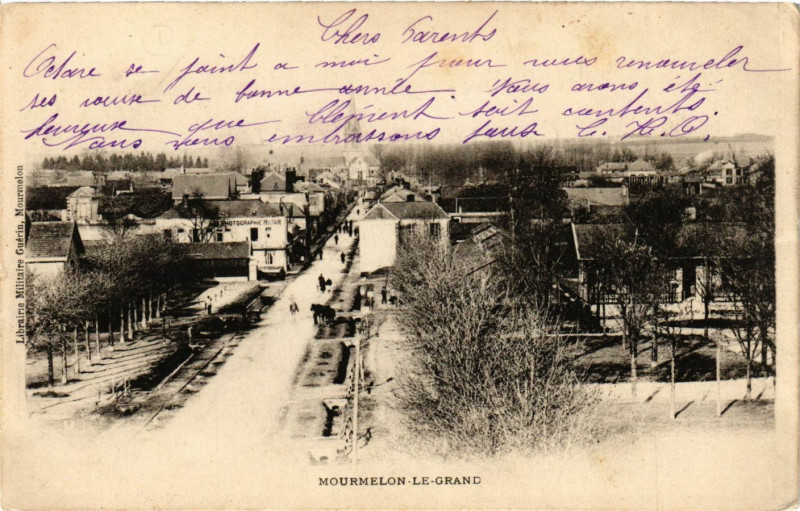 Chers Parents
Octave se joint a moi pour vous renouveler
ses voeux de bonne année. Nous avons été
heureux que Clément soit contents.
Nous vous embrassons tous
Librairie Militaire Guérin, Mourmelon
PHOTOGRAPHIE MILITAIRE
MOURMELON-LE-GRAND